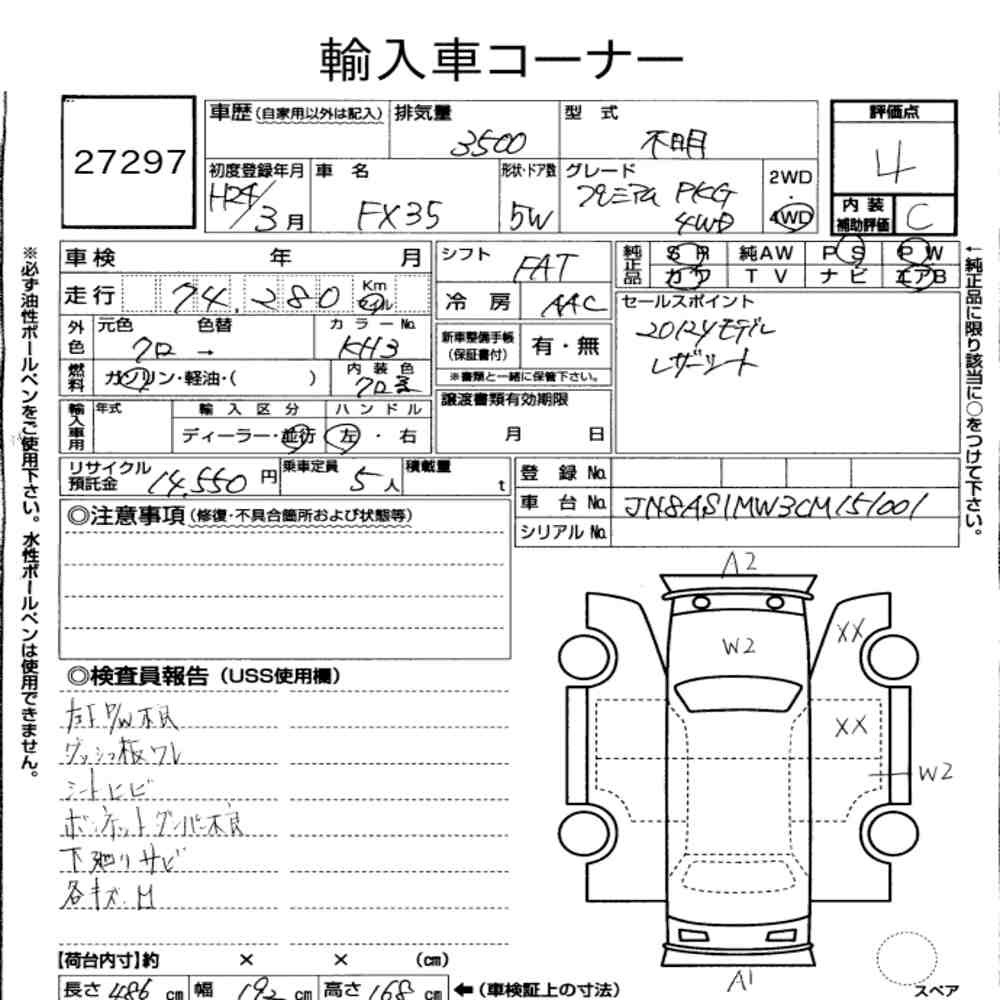 輸入車コーナー
27297
車歴(自家用以外は記入)
排気量 3500
型式 不明
評価点 4
初度登録年月 H24/3月
車名 FX35
形状・ドア数 5W
グレード プレミアム PKG 4WD
2WD・4WD
内装補助評価 C
車検 年 月
シフト FAT
純正品 SR 純AW PS PW
カワ TV ナビ エアB
走行 74,280 Km マイル
冷房 AAC
セールスポイント
2012yモデル
レザーシート
外色 元色 クロ → 色替
カラーNo. KH3
新車整備手帳(保証書付) 有・無
※書類と一緒に保管下さい。
燃料 ガソリン・軽油・( )
内装色 クロ系
譲渡書類有効期限
月 日
輸入車用 年式 輸入区分 ハンドル
ディーラー・並行 左・右
リサイクル預託金 14,550円
乗車定員 5人
積載量 t
登録No.
車台No. JN8AS1MW3CM151001
シリアルNo.
◎注意事項(修復・不具合箇所および状態等)
◎検査員報告(USS使用欄)
左F P/W不良
ダッシュ板ワレ
シートヒビ
ボンネットダンパー不良
下廻りサビ
各キズ.H
A2
W2
XX
XX
W2
A1
スペア
【荷台内寸】約 × × (cm)
長さ 486 cm 幅 192 cm 高さ 168 cm ←(車検証上の寸法)
※必ず油性ボールペンをご使用下さい。水性ボールペンは使用できません。
←純正品に限り該当に○をつけて下さい。